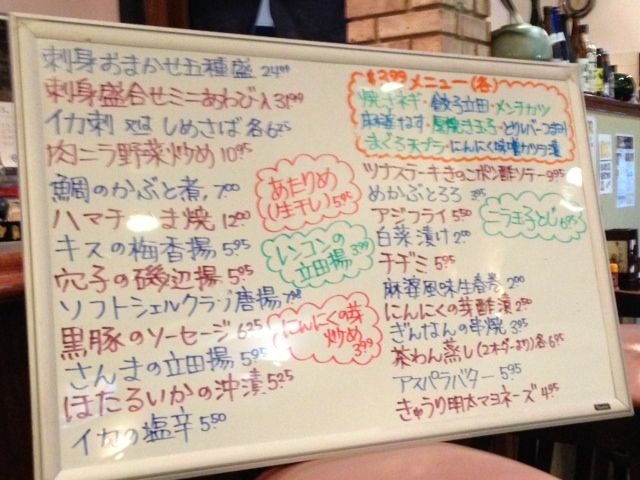 刺身おまかせ五種盛 24.00
刺身盛合せミニあわび入 31.99
イカ刺 又は しめさば 各6.25
肉ニラ野菜炒め 10.95
鯛のかぶと煮 7.00
ハマチかま焼 12.00
キスの梅香揚 5.95
穴子の磯辺揚 5.95
ソフトシェルクラブ唐揚
黒豚のソーセージ 6.25
さんまの立田揚 5.95
ほたるいかの沖漬 5.25
イカの塩辛 5.50
あたりめ
(生干し) 5.95
レンコンの
立田揚 3.99
にんにくの芽
炒め
3.99
$3.99 メニュー(各)
焼きネギ・餃子立田・メンチカツ
麻婆なす・とりレバーつまみ
まぐろ天プラ・にんにく味噌カツヲ漬
ツナステーキきのこポン酢ソテー 9.95
めかぶとろろ 3.95
アジフライ 5.50
白菜漬け 2.00
チヂミ 5.95
麻婆風味生春巻 2.00
にんにくの芽酢漬 2.50
ぎんなんの串焼 3.95
茶わん蒸し(2オーダーより)各6.95
アスパラバター 5.95
きゅうり明太マヨネーズ 4.95
ニラ玉子とじ 6.95